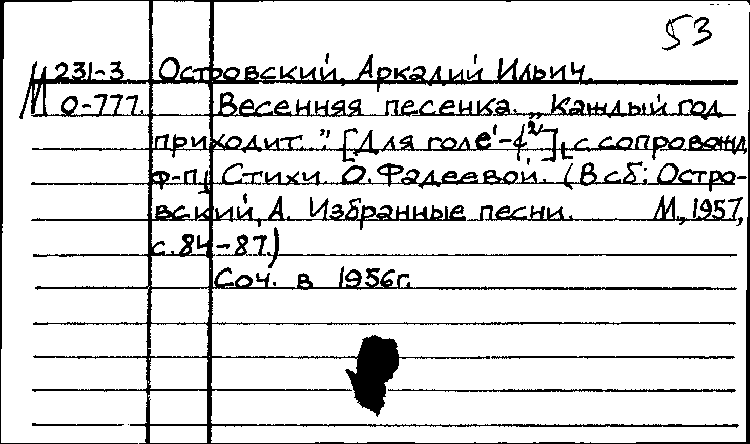 53
М 231-3 Островский, Аркадий Ильич.
О-777. Весенняя песенка. „Каждый год
приходит..." [Для гол е¹-f²], с сопровожд
ф-п. Стихи О. Фадеевой. (В сб: Остро-
вский, А. Избранные песни. М., 1957,
с. 84-87.)
Соч. в 1956г.